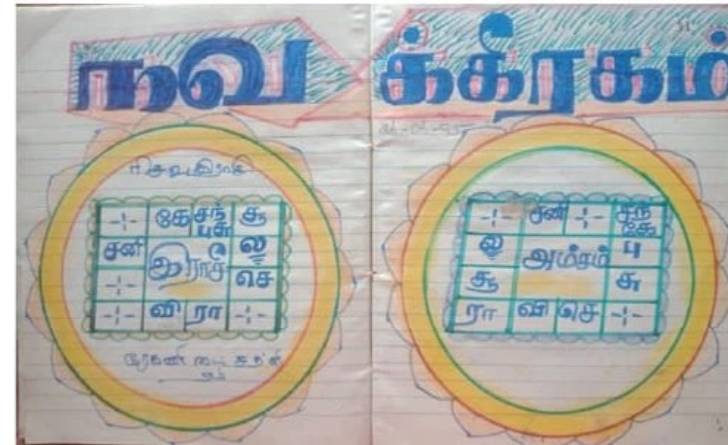 நவக்கிரகம்
கே சந் சூ
புசு
சனி இராசி ல
செ
வி ரா
சனி சந்
கே
ல அம்சம் பு
சூ சு
ரா வி செ